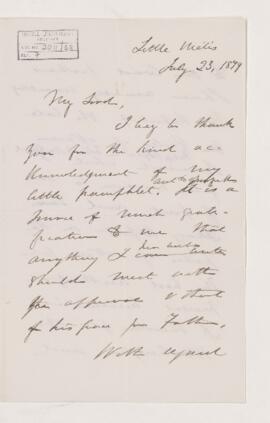 Little Metis
July 23, 1879
My Lord,
I beg to thank
you for the kind ac-
knowledgment of my
little pamphlet. It is a
source of much grati-
fication to me that
anything I
should meet with
the approval & that
of his Grace your Father.
With